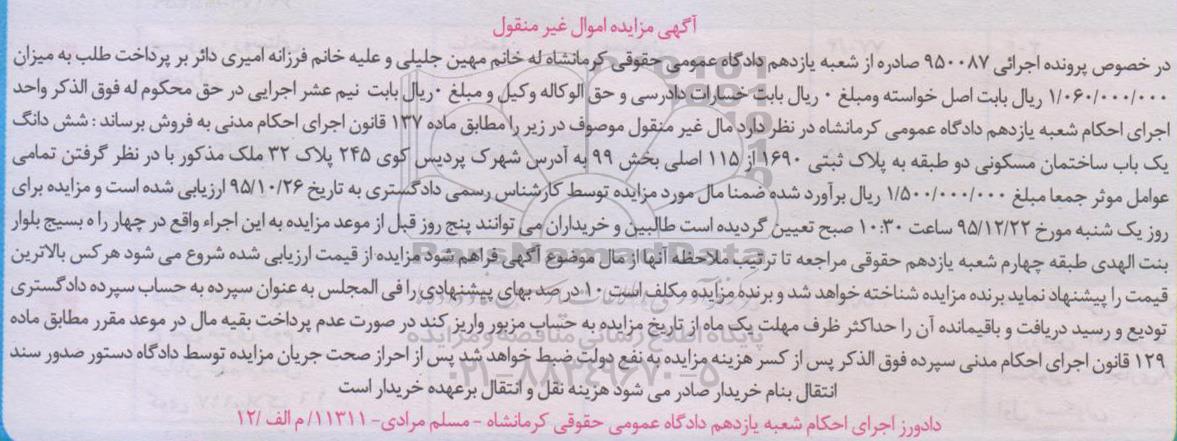 آگهی مزایده اموال غیر منقول
در خصوص پرونده اجرائی ۹۵۰۰۸۷ صادره از شعبه یازدهم دادگاه عمومی حقوقی کرمانشاه له خانم مهین جلیلی و علیه خانم فرزانه امیری دائر بر پرداخت طلب به میزان
۱/۰۶۰/۰۰۰/۰۰۰ ریال بابت اصل خواسته ومبلغ ۰ ریال بابت خسارات دادرسی و حق الوکاله وکیل و مبلغ ۰ریال بابت نیم عشر اجرایی در حق محکوم له فوق الذکر واحد
اجرای احکام شعبه یازدهم دادگاه عمومی کرمانشاه در نظر دارد مال غیر منقول موصوف در زیر را مطابق ماده ۱۳۷ قانون اجرای احکام مدنی به فروش برساند : شش دانگ
یک باب ساختمان مسکونی دو طبقه به پلاک ثبتی ۱۶۹۰ از ۱۱۵ اصلی بخش ۹۹ به آدرس شهرک پردیس کوی ۲۴۵ پلاک ۳۲ ملک مذکور با در نظر گرفتن تمامی
عوامل موثر جمعا مبلغ ۱/۵۰۰/۰۰۰/۰۰۰ ریال برآورد شده ضمنا مال مورد مزایده توسط کارشناس رسمی دادگستری به تاریخ ۹۵/۱۰/۲۶ ارزیابی شده است و مزایده برای
روز یک شنبه مورخ ۹۵/۱۲/۲۲ ساعت ۱۰:۳۰ صبح تعیین گردیده است طالبین و خریداران می توانند پنج روز قبل از موعد مزایده به این اجراء واقع در چهار را ه بسیج بلوار
بنت الهدی طبقه چهارم شعبه یازدهم حقوقی مراجعه تا ترتیب ملاحظه آنها از مال موضوع آگهی فراهم شود مزایده از قیمت ارزیابی شده شروع می شود هر کس بالاترین
قیمت را پیشنهاد نماید برنده مزایده شناخته خواهد شد و برنده مزایده مکلف است ۱۰ در صد بهای پیشنهادی را فی المجلس به عنوان سپرده به حساب سپرده دادگستری
تودیع و رسید دریافت و باقیمانده آن را حداکثر ظرف مهلت یک ماه از تاریخ مزایده به حساب مزبور واریز کند در صورت عدم پرداخت بقیه مال در موعد مقرر مطابق ماده
۱۲۹ قانون اجرای احکام مدنی سپرده فوق الذکر پس از کسر هزینه مزایده به نفع دولت ضبط خواهد شد پس از احراز صحت جریان مزایده توسط دادگاه دستور صدور سند
انتقال بنام خریدار صادر می شود هزینه نقل و انتقال برعهده خریدار است
دادورز اجرای احکام شعبه یازدهم دادگاه عمومی حقوقی کرمانشاه - مسلم مرادی- ۱۱۳۱۱/ م الف /۱۲
ParsNamadData
پایگاه اطلاع رسانی مناقصه و مزایده
۰۲۱-۸۸۳۴۹۶۷۰-۵